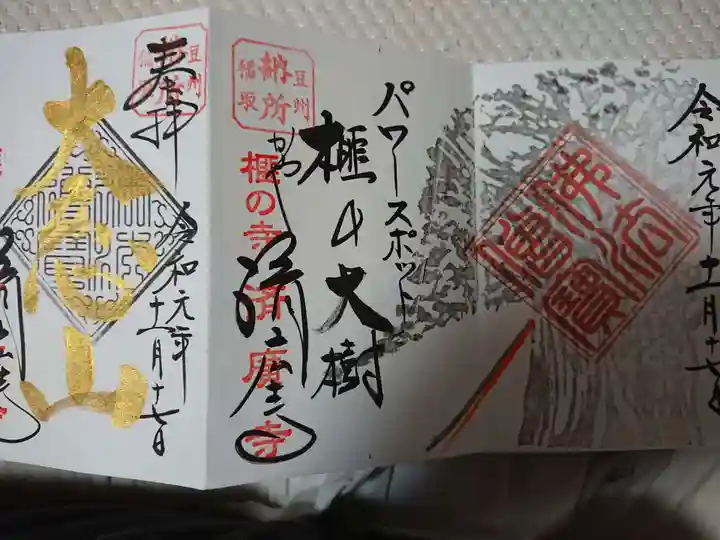 令和元年十一月十七日
佛法僧寶
パワースポット
榧の大樹
豆州
納所
稲取
かやの寺
榧の寺 済廣寺
済広寺
奉拝
豆州
納所
稲取
令和元年
十一月十七日
大悲山